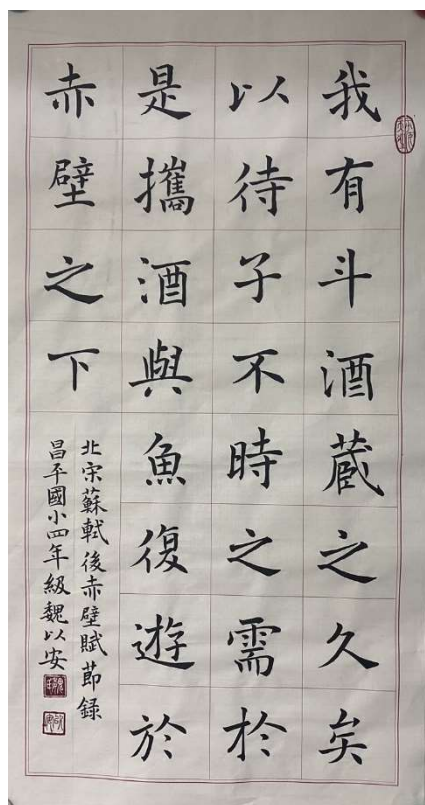 我有斗酒蔵之久矣
以待子不時之需於
是攜酒與魚復遊於
赤壁之下
北宋蘇軾後赤壁賦節錄
昌平國小四年級魏以安